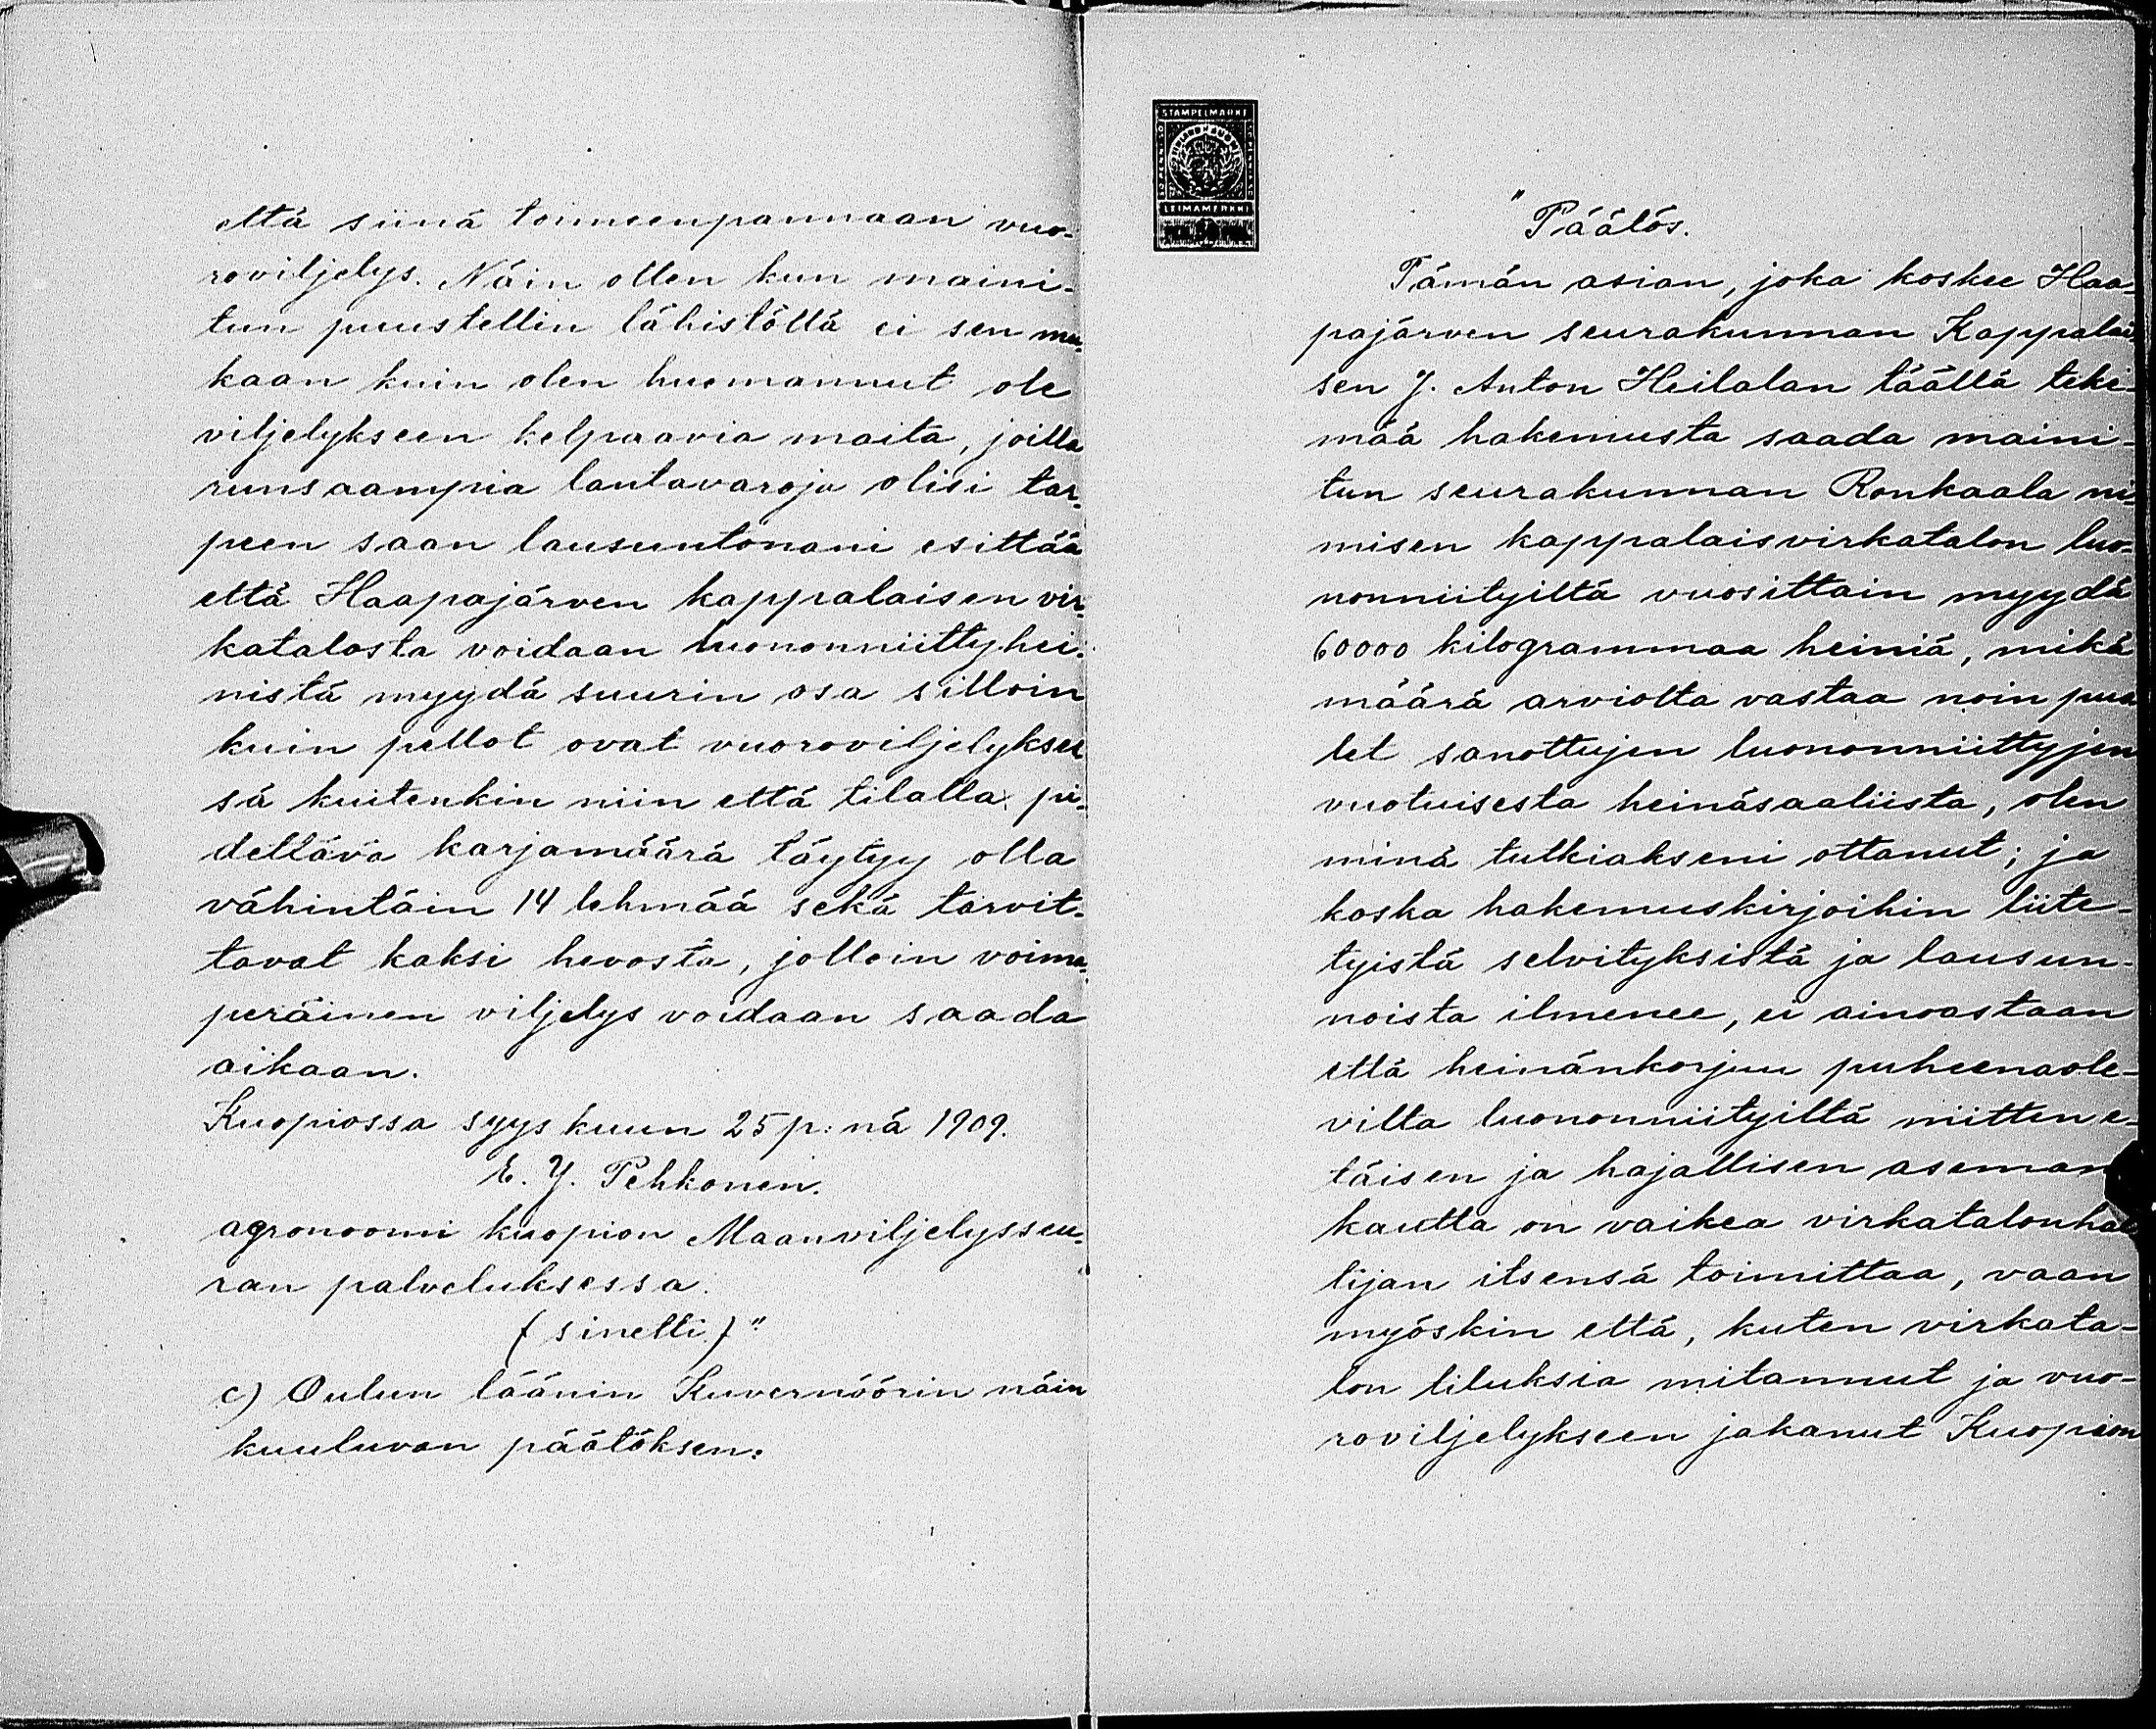 että siinä toimeenpannaan vuo-
roviljelys. Näin ollen kun maini-
tun puustellin lähistöllä ei sen mu-
kaan kuin olen huomannut ole
viljelykseen kelpaavia maita, joilla
runsaampia lantavaroja olisi tar-
peen saan lausuntonani esittää
että Haapajärven kappalaisen vir-
katalosta voidaan luononniittyhei-
nistä myydä suurin osa silloin
kuin pellot ovat vuoroviljelykses
sä kuitenkin niin että tilalla pi-
dettävä karjamäärä täytyy olla
vähintäin 14 lehmää sekä tarvit-
tavat kaksi hevosta, jolloin voima-
peräinen viljelys voidaan saada
aikaan.
Kuopiossa syyskuun 25 p:nä 1909.
E. Y. Pehkonen.
agronoomi kuopion Maanviljelysseu-
ran palveluksessa.
(sinetti)"
c) Oulun läänin Kuvernöörin näin
kuuluvan päätöksen:
STÄMPELMÄRKE
LEIMAMERKKI
"Päätös.
Tämän asian, joka koskee Haa-
pajärven seurakunnan Kappalai-
sen J. Anton Heilalan täällä teke-
mää hakemusta saada maini-
tun seurakunnan Ronkaala ni-
misen kappalaisvirkatalon luo-
nonniityiltä vuosittain myydä
60000 kilogrammaa heiniä, mikä
määrä arviolta vastaa noin puo
let sanottujen luononniittyjen
vuotuisesta heinäsaaliista, olen
minä tutkiakseni ottanut; ja
koska hakemuskirjoihin liite-
tyistä selvityksistä ja lausun-
noista ilmenee, ei ainoastaan
että heinänkorjuu puheenaole-
vilta luononniityiltä niitten e-
täisen ja hajallisen aseman
kautta on vaikea virkatalonhal
tijan itsensä toimittaa, vaan
myöskin että, kuten virkata-
lon tiluksia mitannut ja vuo-
roviljelykseen jakanut Kuopion